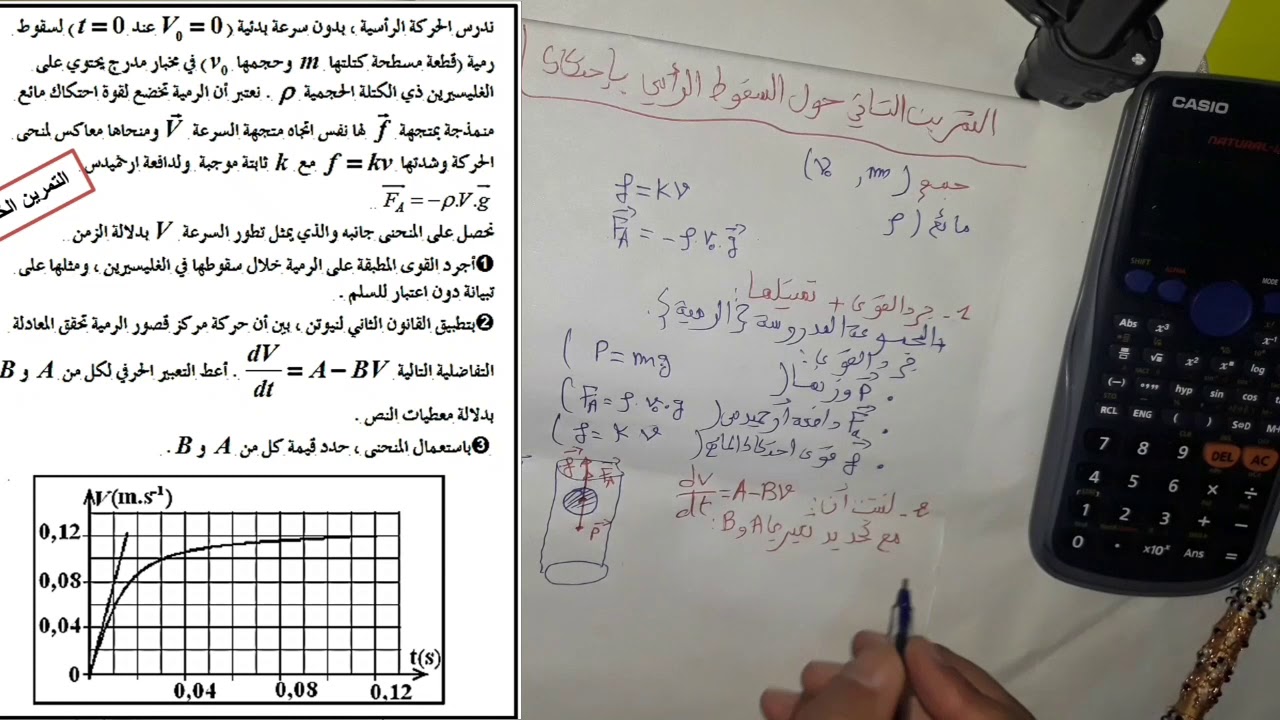 ندرس الحركة الرأسية ، بدون سرعة بدئية (V₀ = 0 عند t = 0) لسقوط
رمية (قطعة مسطحة كتلتها m وحجمها v₀) في مخبار مدرج يحتوي على
الغليسيرين ذي الكتلة الحجمية ρ . نعتبر أن الرمية تخضع لقوة احتكاك مائع
منمذجة بمتجهة f⃗ لها نفس اتجاه متجهة السرعة V⃗ ومنحاها معاكس لمنحى
الحركة وشدتها f = kv مع k ثابتة موجبة ولدافعة ارخميدس
F_A⃗ = −ρ.V.g⃗
التمرين
نحصل على المنحنى جانبه والذي يمثل تطور السرعة V بدلالة الزمن.
❶أجرد القوى المطبقة على الرمية خلال سقوطها في الغليسيرين ، ومثلها على
تبيانة دون اعتبار للسلم .
❷بتطبيق القانون الثاني لنيوتن ، بين أن حركة مركز قصور الرمية تحقق المعادلة
التفاضلية التالية dV/dt = A − BV . أعط التعبير الحرفي لكل من A و B
بدلالة معطيات النص .
❸باستعمال المنحنى ، حدد قيمة كل من A و B .
V(m.s⁻¹)
0,12
0,08
0,04
0
0,04
0,08
0,12
t(s)
التمرين الثاني حول السقوط الرأسي بإحتكاك
جسم (m , v₀)
f = Kv
مائع (ρ
F_A⃗ = −ρ.v₀.g⃗
1- جرد القوى + تمثيلها :
المجموعة المدروسة {الرمية}.
جرد القوى :
• P⃗ وزنها ( P = mg )
• F_A⃗ دافعة أرخميدس ( F_A = ρ.v₀.g )
• f⃗ قوى احتكاك المائع ( f = K v )
f⃗
F_A⃗
P⃗
2- لنثبت أن : dv/dt = A − Bv
مع تحديد تعبيري A و B :
CASIO
NATURAL-
SHIFT
ALPHA
MODE
Abs x³ x⁻¹
√ x² log
(−) hyp sin cos
RCL ENG ( ) S⇔D
7 8 9 DEL AC
4 5 6 × ÷
1 2 3 + −
0 . ×10ˣ Ans =